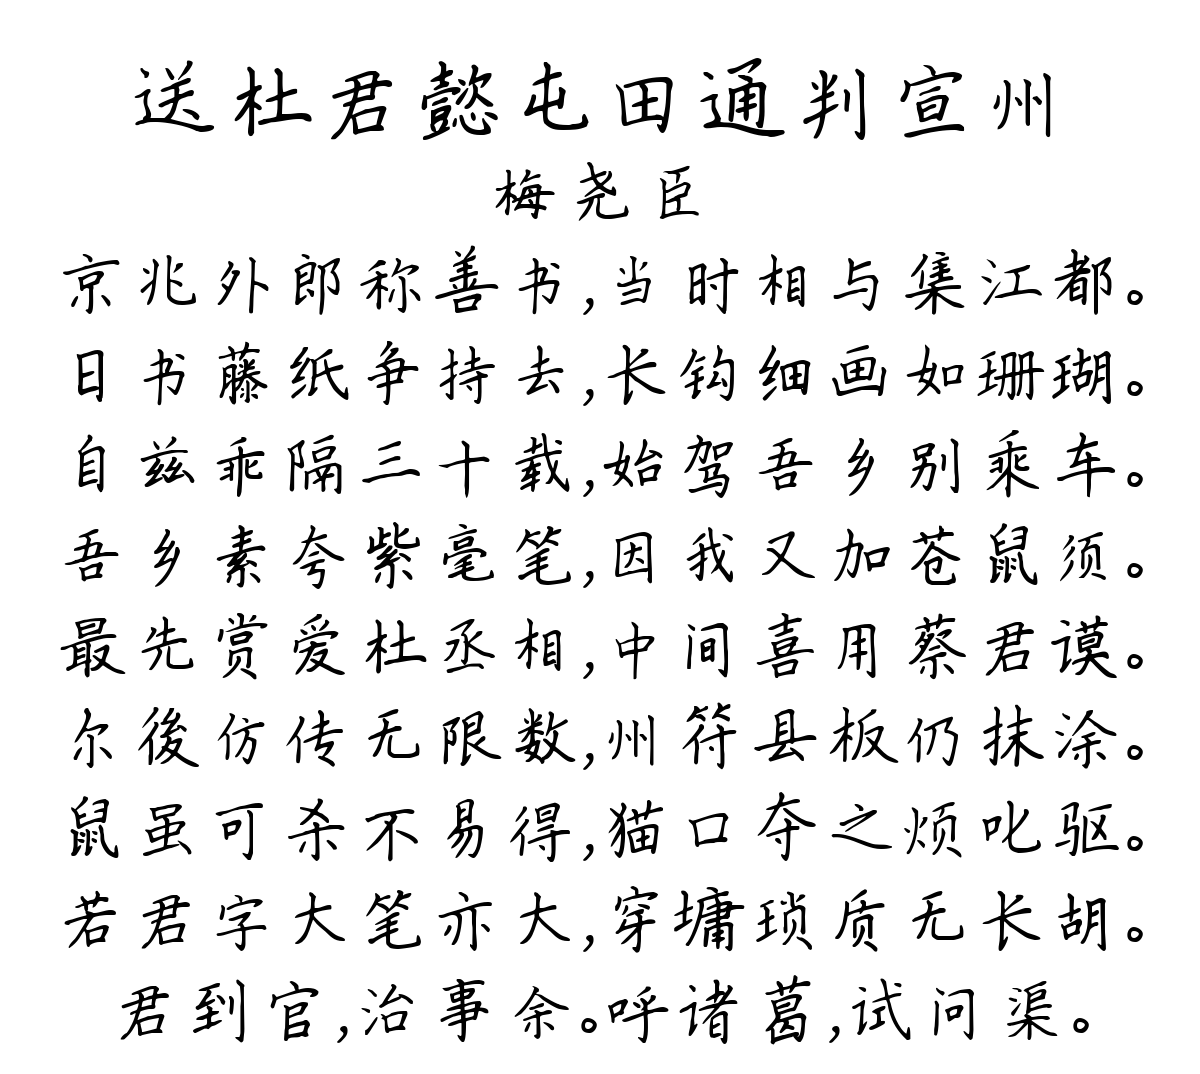 送杜君懿屯田通判宣州
梅尧臣
京兆外郎称善书,当时相与集江都。
日书藤纸争持去,长钩细画如珊瑚。
自兹乖隔三十载,始驾吾乡别乘车。
吾乡素夸紫毫笔,因我又加苍鼠须。
最先赏爱杜丞相,中间喜用蔡君谟。
尔後仿传无限数,州符县板仍抹涂。
鼠虽可杀不易得,猫口夺之烦叱驱。
若君字大笔亦大,穿墉琐质无长胡。
君到官,治事余。呼诸葛,试问渠。